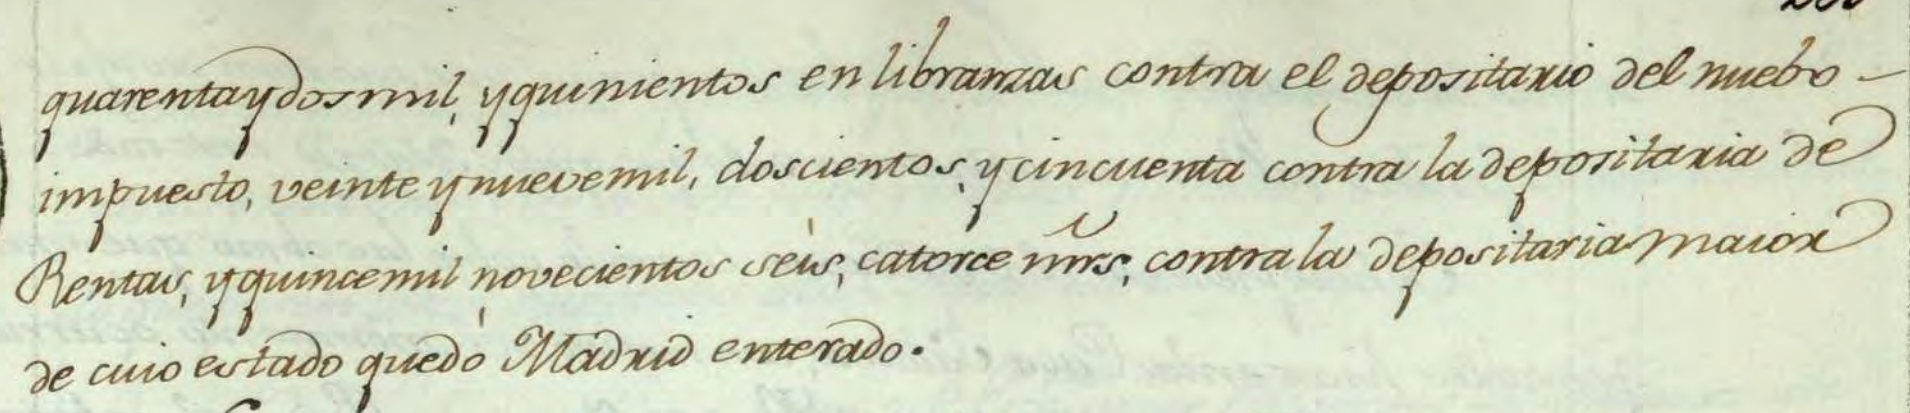 quarenta y dos mil, y quinientos en libranzas contra el depositario del nuebo
impuesto, veinte y nueve mil, doscientos, y cincuenta contra la depositaria de
Rentas, y quince mil novecientos séis, catorce mrs, contra la depositaria maior
de cuio estado quedó Madrid enterado.